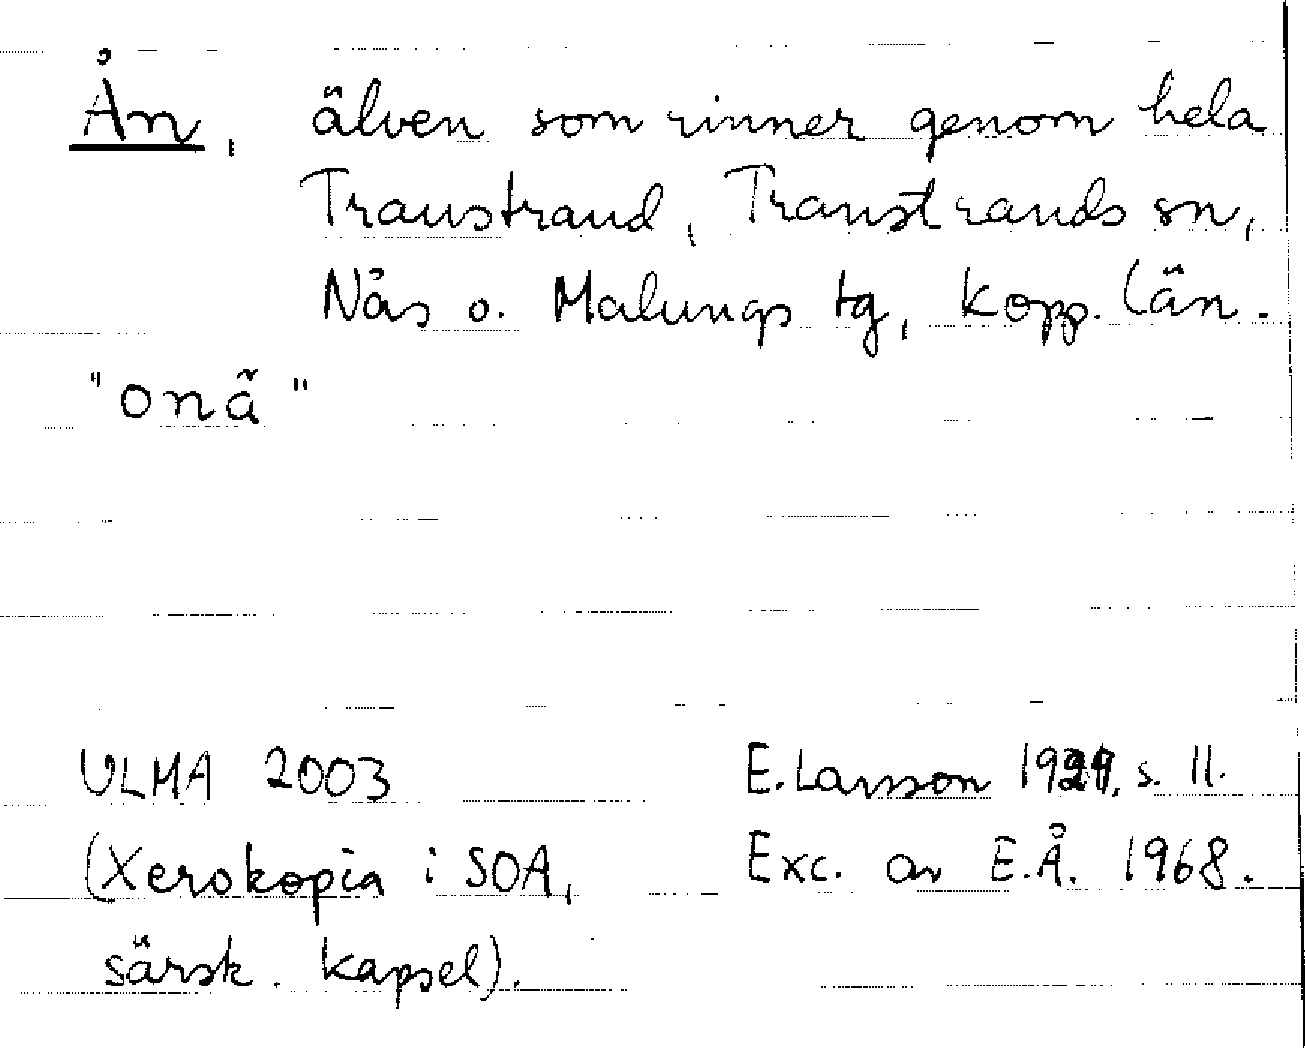 Ån, älven som rinner genom hela
Transtrand, Transtrands sn,
Nås o. Malungs tg, Kopp. län.
"onã"
ULMA 2003 E. Larsson 1929, s. 11.
(Xerokopia i SOA, Exc. av E.Å. 1968.
särsk. kapsel).